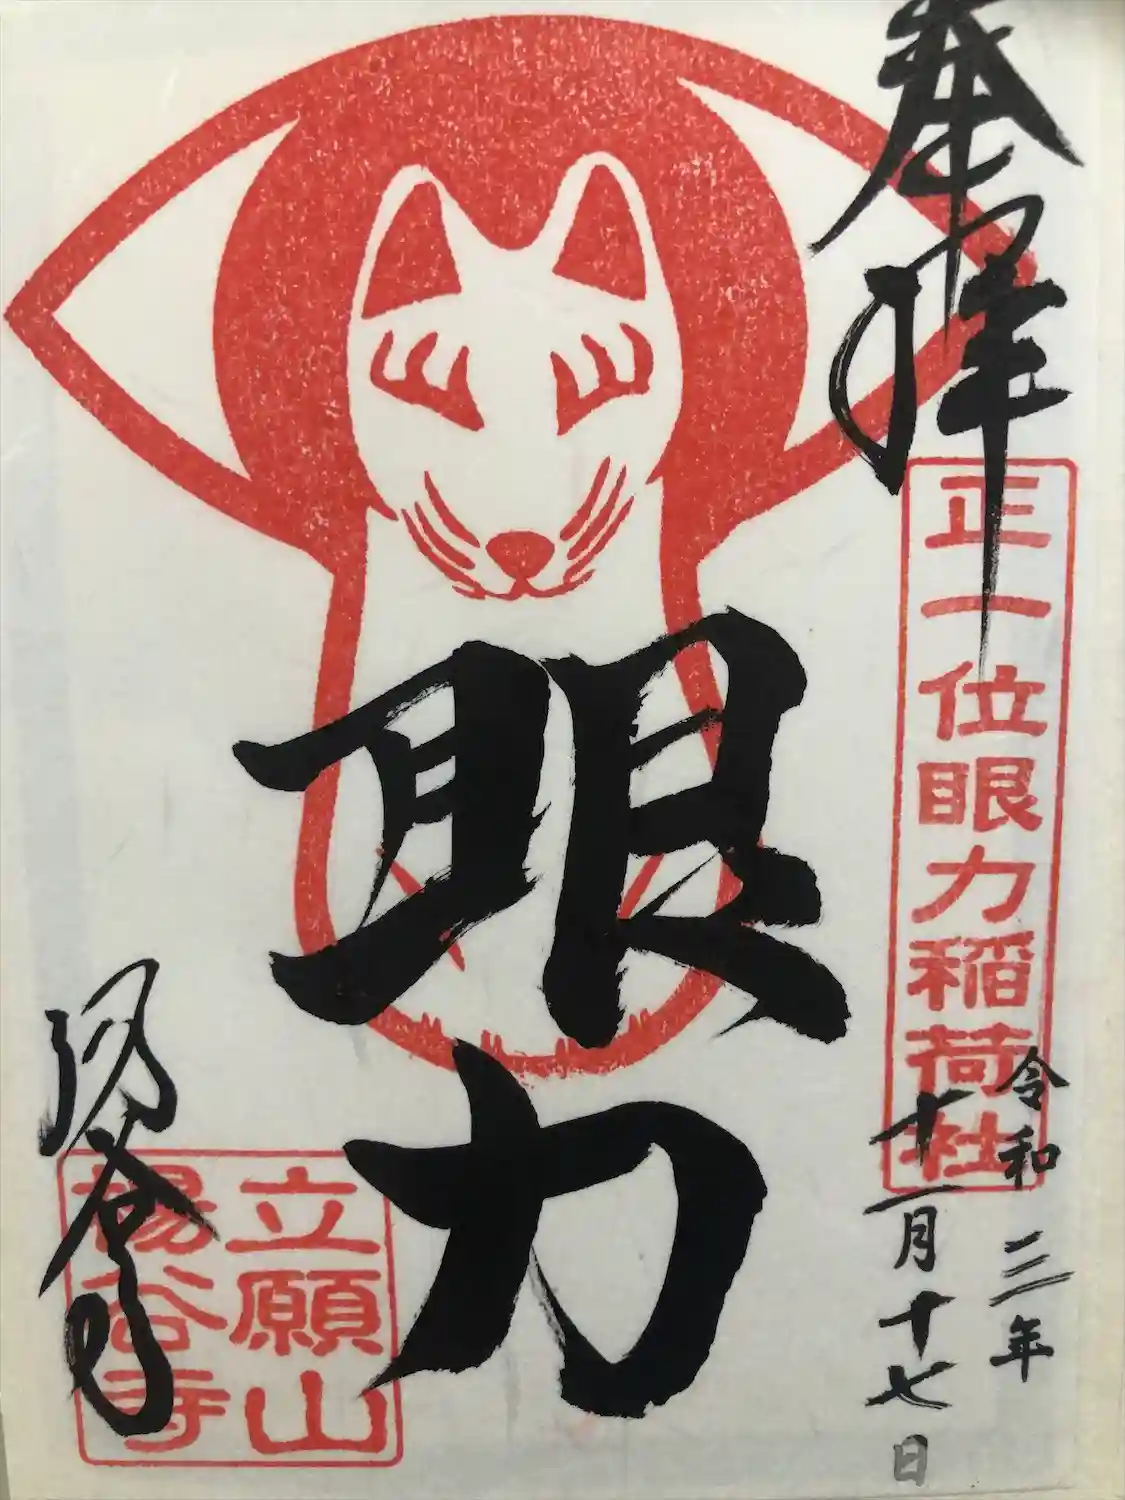 奉拝
正一位眼力稲荷社
令和三年
十一月十七日
眼力
立願山
楊谷寺
楊谷寺